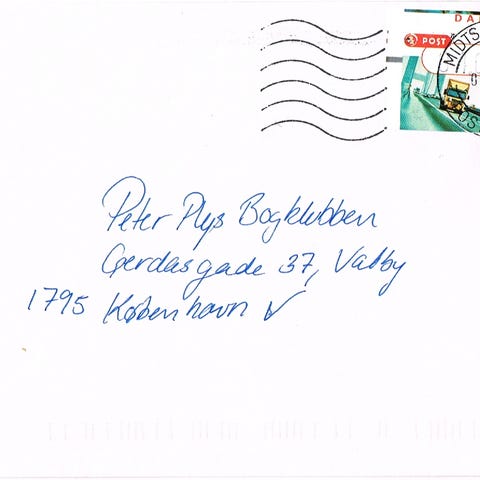 DA
POST
MIDTS
OS
Peter Plys Bogklubben
Gerdasgade 37, Valby
1795 København V